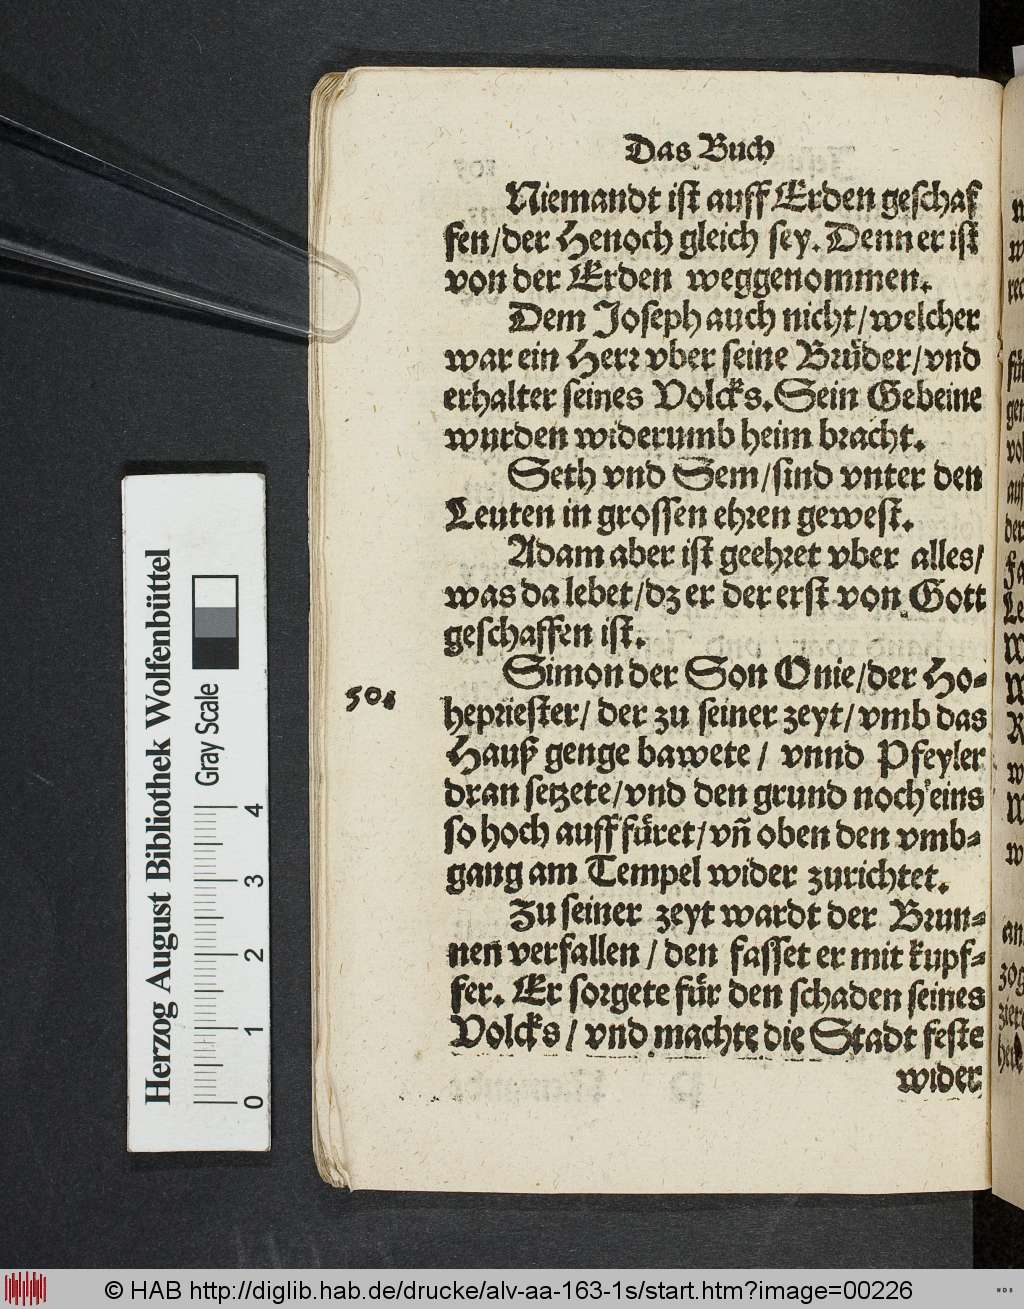 Das Buch
Niemandt ist auff Erden geschaf
fen/der Henoch gleich sey. Denn er ist
von der Erden weggenommen.
Dem Joseph auch nicht/welcher
war ein Herr vber seine Brüder/vnd
erhalter seines Volcks. Sein Gebeine
wurden widerumb heim bracht.
Seth vnd Sem/sind vnter den
Leuten in grossen ehren gewest.
Adam aber ist geehret vber alles/
was da lebet/dz er der erst von Gott
geschaffen ist.
50.
Simon der Son Onie/der Ho-
hepriester/ der zu seiner zeyt/vmb das
Hauß genge bawete / vnnd Pfeyler
dran setzete/vnd den grund noch eins
so hoch auff füret/vñ oben den vmb-
gang am Tempel wider zurichtet.
Zu seiner zeyt wardt der Brun-
nen verfallen / den fasset er mit kupf-
fer. Er sorgete für den schaden seines
Volcks / vnd machte die Stadt feste
wider
Herzog August Bibliothek Wolfenbüttel
Gray Scale
0 1 2 3 4
© HAB http://diglib.hab.de/drucke/alv-aa-163-1s/start.htm?image=00226